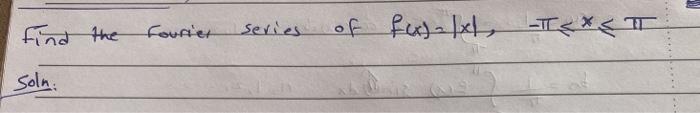 Find the Fourier series of f(x)=|x|, -π≤x≤π
Soln: